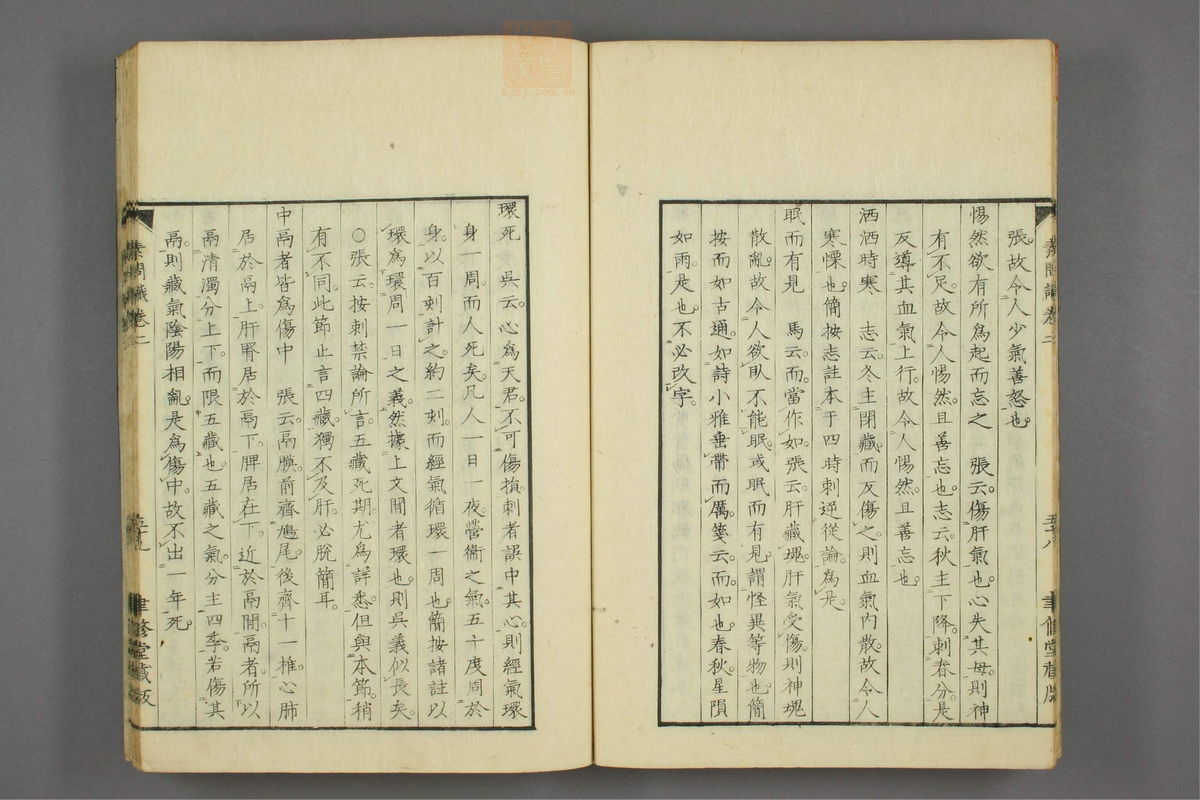 素問識卷二
張故令人少氣善怒也
惕然欲有所爲起而忘之　張云傷肝氣也心失其母則神
有不足故令人惕然且善忘也志云秋主下降刺春分是
反導其血氣上行故令人惕然且善忘也
洒洒時寒　志云冬主閉藏而反傷之則血氣内散故令人
寒慄也簡按志註本于四時刺逆從論爲是
眠而有見　馬云而當作如張云肝藏魂肝氣受傷則神魂
散亂故令人欲臥不能眠或眠而有見謂怪異等物也簡
按而如古通如詩小雅垂帶而厲箋云而如也春秋星隕
如雨是也不必改字
五十八
聿修堂藏版
環死　吳云心爲天君不可傷損刺者誤中其心則經氣環
身一周而人死矣凡人一日一夜營衞之氣五十度周於
身以百刻計之約二刻而經氣循環一周也簡按諸註以
環爲環周一日之義然據上文間者環也則吳義似長矣
○張云按刺禁論所言五藏死期尤爲詳悉但與本節稍
有不同此節止言四藏獨不及肝必脫簡耳
中鬲者皆爲傷中　張云鬲膜前齊鳩尾後齊十一椎心肺
居於鬲上肝腎居於鬲下脾居在下近於鬲間鬲者所以
鬲清濁分上下而限五藏也五藏之氣分主四季若傷其
鬲則藏氣陰陽相亂是爲傷中故不出一年死
素問識卷二
五十九
聿修堂藏版
zysj.com.cn